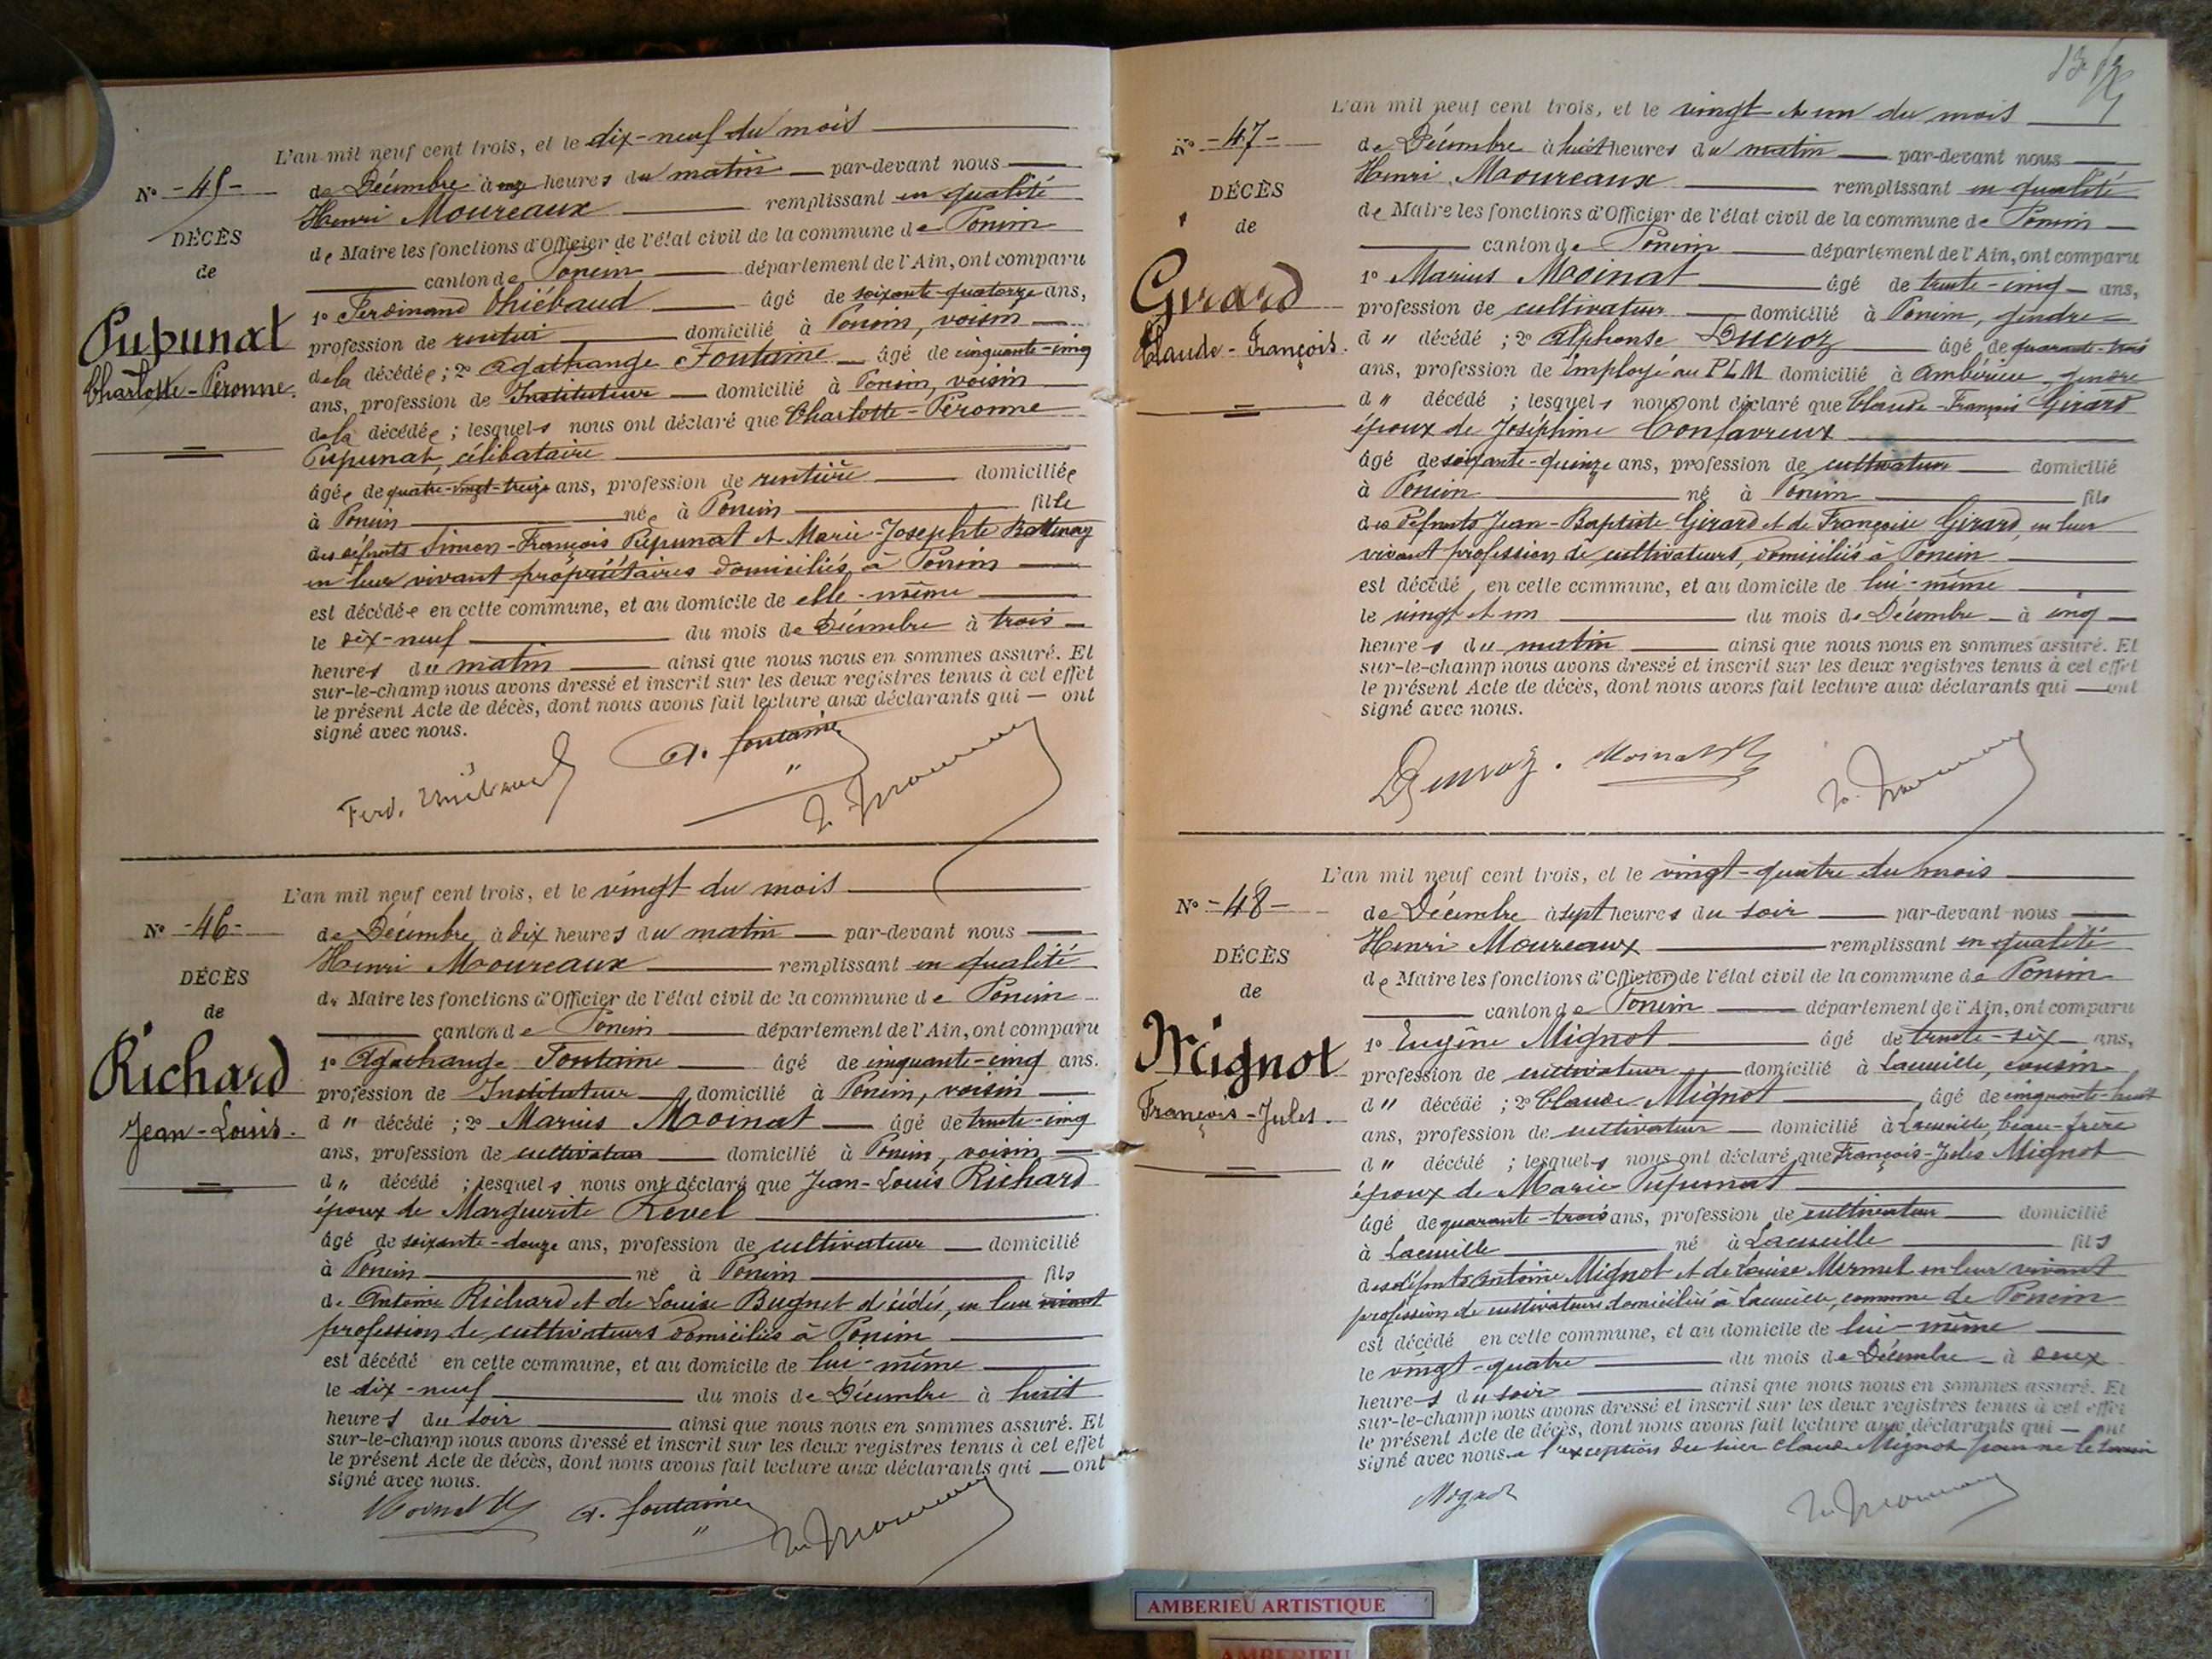 L'an mil neuf cent trois, et le dix-neuf du mois
N° -45-
de Décembre à onze heures du matin par-devant nous
Henri Moureaux remplissant en qualité
DÉCÈS
de Maire les fonctions d'Officier de l'état civil de la commune de Poncin
de
canton de Poncin département de l'Ain, ont comparu
Pupunat
1° Ferdinand Thiébaud âgé de soixante-quatorze ans,
profession de rentier domicilié à Poncin, voisin
Charlotte-Péronne.
de la décédée ; 2° Agathange Fontaine âgé de cinquante-cinq
ans, profession de Instituteur domicilié à Poncin, voisin
de la décédée ; lesquels nous ont déclaré que Charlotte-Péronne
Pupunat, célibataire
âgée de quatre-vingt-treize ans, profession de rentière domiciliée
à Poncin née à Poncin fille
des défunts Simon-François Pupunat et Marie-Josephte
en leur vivant propriétaires domiciliés à Poncin
est décédée en cette commune, et au domicile de elle-même
le dix-neuf du mois de Décembre à trois
heures du matin ainsi que nous nous en sommes assuré. Et
sur-le-champ nous avons dressé et inscrit sur les deux registres tenus à cet effet
le présent Acte de décès, dont nous avons fait lecture aux déclarants qui — ont
signé avec nous.
Ferd. Thiébaud A. fontaine
L'an mil neuf cent trois, et le vingt du mois
N° -46-
de Décembre à dix heures du matin par-devant nous
Henri Moureaux remplissant en qualité
DÉCÈS
de Maire les fonctions d'Officier de l'état civil de la commune de Poncin
de
canton de Poncin département de l'Ain, ont comparu
Richard
1° Agathange Fontaine âgé de cinquante-cinq ans.
profession de Instituteur domicilié à Poncin, voisin
Jean-Louis.
d" décédé ; 2° Marius Moinat âgé de trente-cinq
ans, profession de cultivateur domicilié à Poncin, voisin
d" décédé ; lesquels nous ont déclaré que Jean-Louis Richard
époux de Marguerite Revel
âgé de soixante-douze ans, profession de cultivateur domicilié
à Poncin né à Poncin fils
de Antoine Richard et de Louise Bugnet décédés, en leur vivant
profession de cultivateurs domiciliés à Poncin
est décédé en cette commune, et au domicile de lui-même
le dix-neuf du mois de Décembre à huit
heures du soir ainsi que nous nous en sommes assuré. Et
sur-le-champ nous avons dressé et inscrit sur les deux registres tenus à cet effet
le présent Acte de décès, dont nous avons fait lecture aux déclarants qui — ont
signé avec nous.
Moinat A. fontaine
L'an mil neuf cent trois, et le vingt et un du mois
N° -47-
de Décembre à huit heures du matin par-devant nous
Henri Moureaux remplissant en qualité
DÉCÈS
de Maire les fonctions d'Officier de l'état civil de la commune de Poncin
de
canton de Poncin département de l'Ain, ont comparu
Girard
1° Marius Moinat âgé de trente-cinq ans,
profession de cultivateur domicilié à Poncin, gendre
Claude-François.
d" décédé ; 2° Alphonse Ducroz âgé de quarante-trois
ans, profession de Employé au PLM domicilié à Ambérieu, gendre
d" décédé ; lesquels nous ont déclaré que Claude-François Girard
époux de Joséphine Confavreux
âgé de soixante-quinze ans, profession de cultivateur domicilié
à Poncin né à Poncin fils
des défunts Jean-Baptiste Girard et de Françoise Girard, en leur
vivant profession de cultivateurs, domiciliés à Poncin
est décédé en cette commune, et au domicile de lui-même
le vingt et un du mois de Décembre à cinq
heures du matin ainsi que nous nous en sommes assuré. Et
sur-le-champ nous avons dressé et inscrit sur les deux registres tenus à cet effet
le présent Acte de décès, dont nous avons fait lecture aux déclarants qui — ont
signé avec nous.
Ducroz. Moinat
L'an mil neuf cent trois, et le vingt-quatre du mois
N° -48-
de Décembre à sept heures du soir par-devant nous
Henri Moureaux remplissant en qualité
DÉCÈS
de Maire les fonctions d'Officier de l'état civil de la commune de Poncin
de
canton de Poncin département de l'Ain, ont comparu
Mignot
1° Eugène Mignot âgé de trente-six ans,
profession de cultivateur domicilié à Lacueille, cousin
François-Jules.
d" décédé ; 2° Claude Mignot âgé de cinquante-huit
ans, profession de cultivateur domicilié à Lacueille, beau-frère
d" décédé ; lesquels nous ont déclaré que François-Jules Mignot
époux de Marie Pupunat
âgé de quarante-trois ans, profession de cultivateur domicilié
à Lacueille né à Lacueille fils
des défunts Antoine Mignot et de Louise Mermet en leur vivant
profession de cultivateurs domiciliés à Lacueille, commune de Poncin
est décédé en cette commune, et au domicile de lui-même
le vingt-quatre du mois de Décembre à deux
heures du soir ainsi que nous nous en sommes assuré. Et
sur-le-champ nous avons dressé et inscrit sur les deux registres tenus à cet effet
le présent Acte de décès, dont nous avons fait lecture aux déclarants qui — ont
signé avec nous à l'exception du sieur Claude Mignot pour ne le savoir
Mignot
AMBERIEU ARTISTIQUE
AMBERIEU